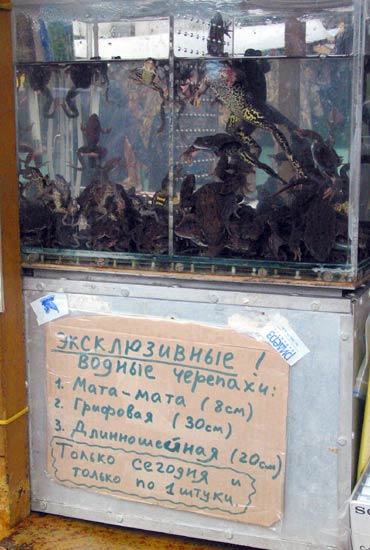 эксклюзивные !
водные черепахи:
1. Мата-мата (8см)
2. Грифовая (30см)
3. Длинношейная (20см)
Только сегодня и
только по 1 штуки.